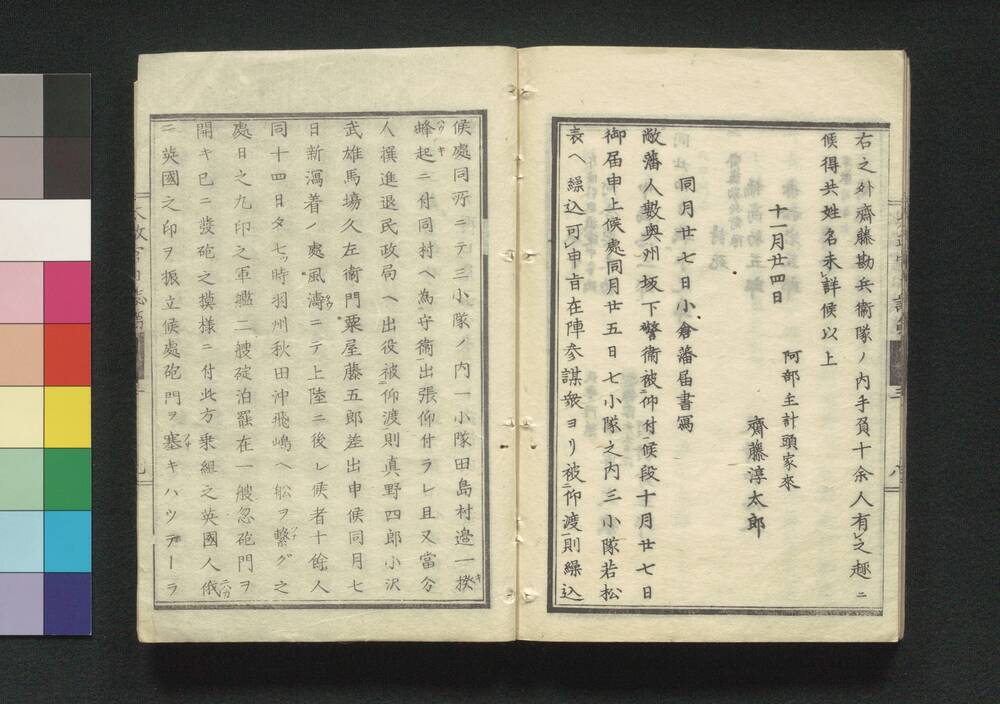 右之外齊藤勘兵衞隊ノ内手負十余人有之趣ニ
候得共姓名未詳候以上
十一月廿四日
阿部主計頭家來
齊藤淳太郎
同月廿七日小倉藩届書寫
敝藩人數奥州坂下警衞被仰付候段十月廿七日
御届申上候處同月廿五日七小隊之内三小隊若松
表ヘ繰込可申旨在陣参謀衆ヨリ被仰渡則繰込
候處同所ニテ三小隊ノ内一小隊田島村邉一揆
蜂起ニ付同村ヘ為守衞出張仰付ラレ且又當分
人撰進退民政局ヘ出役被仰渡則真野四郎小沢
武雄馬塲久左衞門粟屋藤五郎差出申候同月七
日新潟着ノ處風濤ニテ上陸ニ後レ候者十餘人
同十四日夕七ッ時羽州秋田沖飛嶋ヘ舩ヲ繋グ之
處日之丸印之軍艦二艘碇泊罷在一艘忽砲門ヲ
開キ已ニ發砲之摸様ニ付此方乗組之英國人俄
ニ英國之印ヲ振立候處砲門ヲ塞キハツテーラ